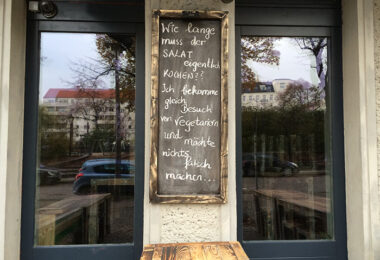 Wie lange
muss der
SALAT
eigentlich
KOCHEN??
Ich bekomme
gleich
Besuch
von Vegetariern
und möchte
nichts
falsch
machen...